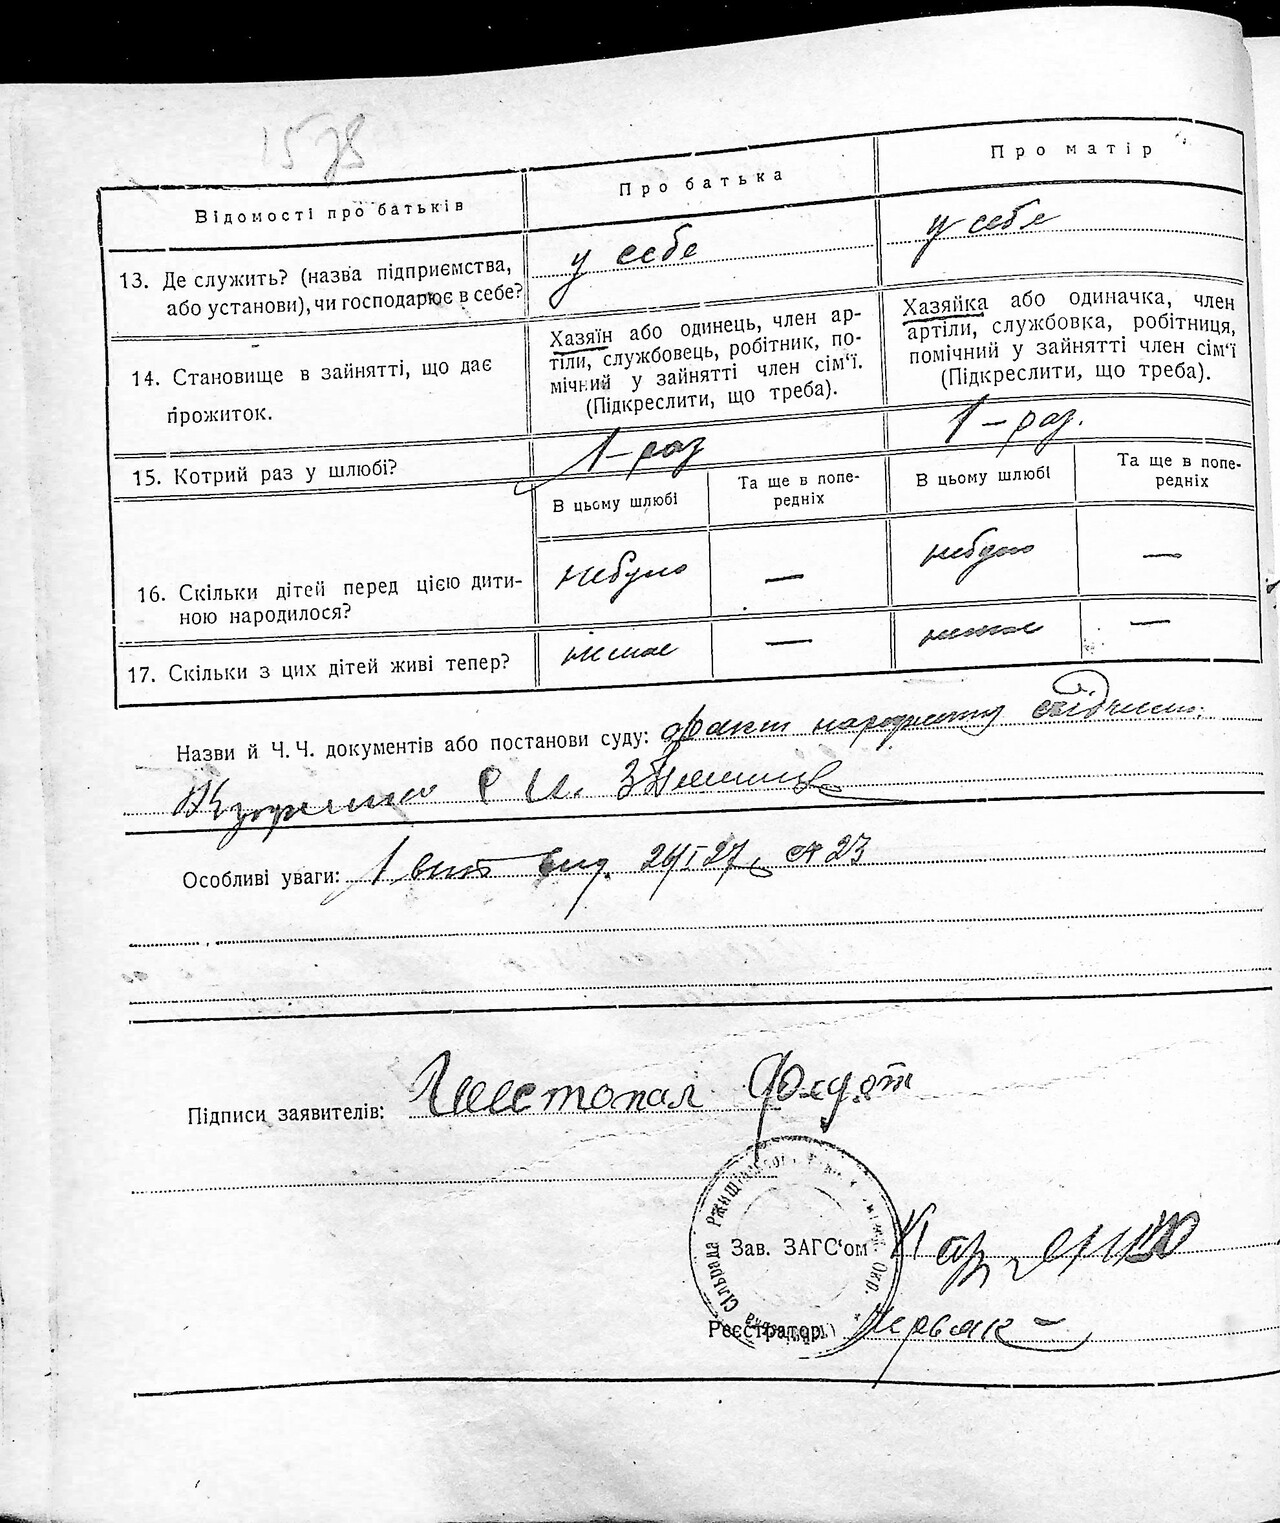 Відомості про батьків
Про батька
Про матір
13. Де служить? (назва підприємства,
або установи), чи господарює в себе?
у себе
у себе
14. Становище в зайнятті, що дає
прожиток.
Хазяїн або одинець, член ар-
тіли, службовець, робітник, по-
мічний у зайнятті член сім‘ї.
(Підкреслити, що треба).
Хазяйка або одиначка, член
артіли, службовка, робітниця,
помічний у зайнятті член сім‘ї
(Підкреслити, що треба).
15. Котрий раз у шлюбі?
1-раз
1-раз.
В цьому шлюбі
Та ще в попе-
редніх
В цьому шлюбі
Та ще в попе-
редніх
16. Скільки дітей перед цією дити-
ною народилося?
небуло
—
небуло
—
17. Скільки з цих дітей живі тепер?
немає
—
немає
—
Назви й Ч. Ч. документів або постанови суду: Факт народження
Особливі уваги: 1 вит вид. 29/I 27 № 23
Підписи заявителів: Шестопал Федот
Зав. ЗАГС‘ом
Сільрада Ржищівського Окр.
Реєстратор Червяк